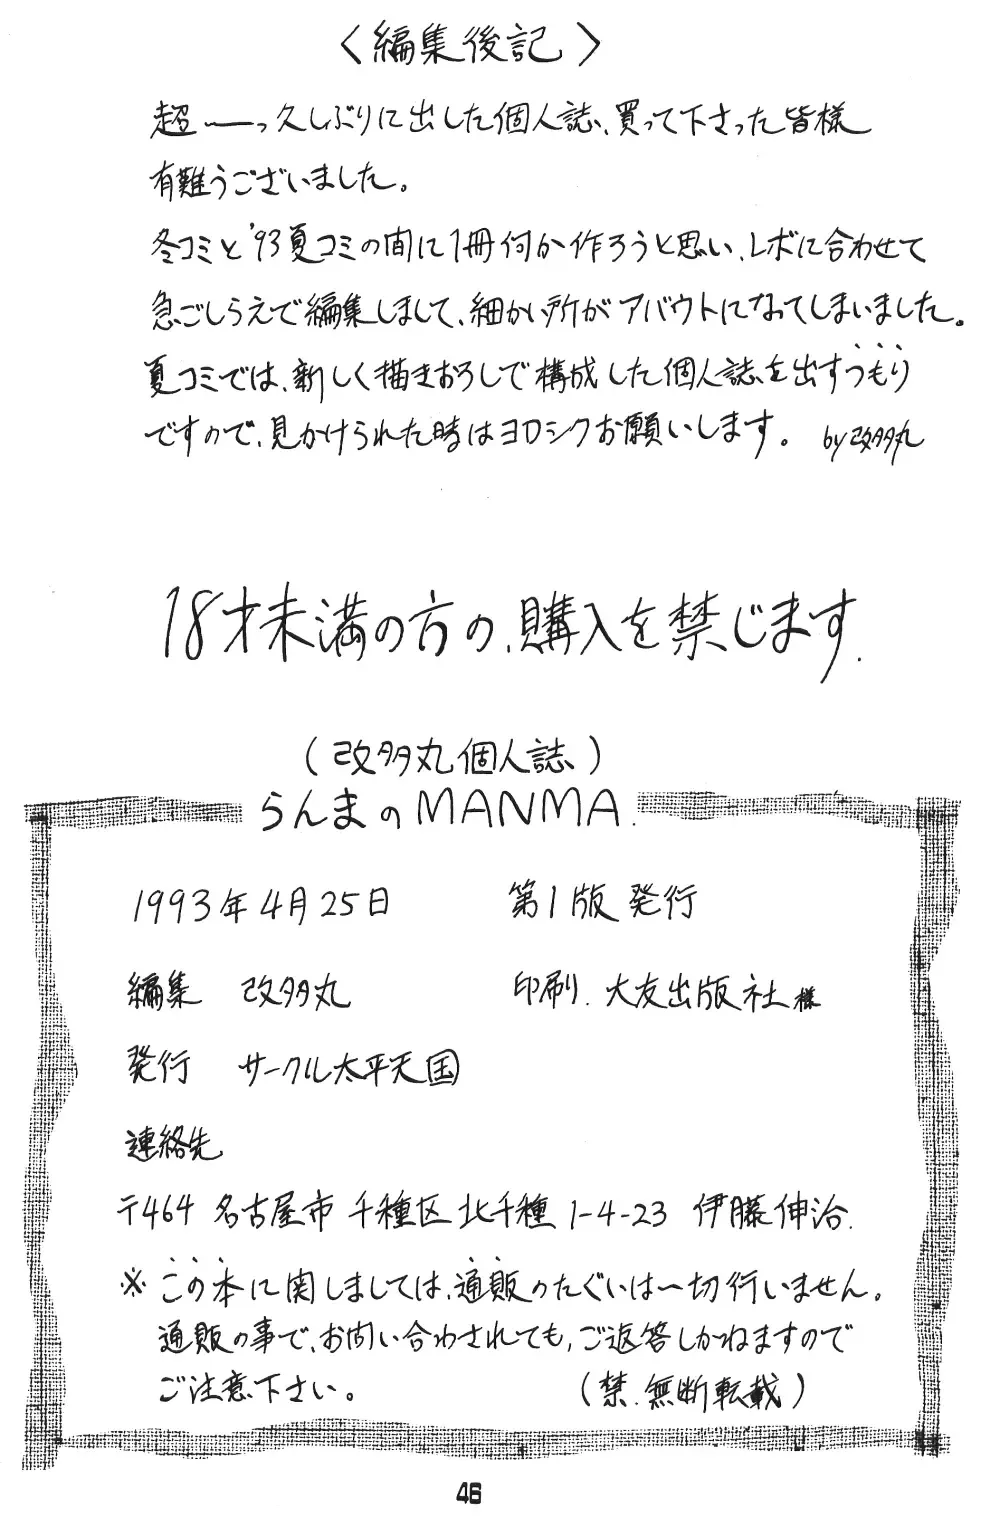 〈編集後記〉
超〜――っ久しぶりに出した個人誌、買って下さった皆様
有難うございました。
冬コミと'93夏コミの間に1冊何か作ろうと思い、レボに合わせて
急ごしらえで編集しまして、細かい所がアバウトになってしまいました。
夏コミでは、新しく描きおろしで構成した個人誌を出すつもり
ですので、見かけられた時はヨロシクお願いします。 by改多丸
18才未満の方の、購入を禁じます.
(改多丸個人誌)
らんまのMANMA.
1993年4月25日 第1版発行
編集 改多丸 印刷.大友出版社様
発行 サークル太平天国
連絡先
〒464 名古屋市千種区北千種1-4-23 伊藤伸治.
※この本に関しましては、通販のたぐいは一切行いません。
通販の事で、お問い合わされても,ご返答しかねますので
ご注意下さい。 (禁.無断転載)
46